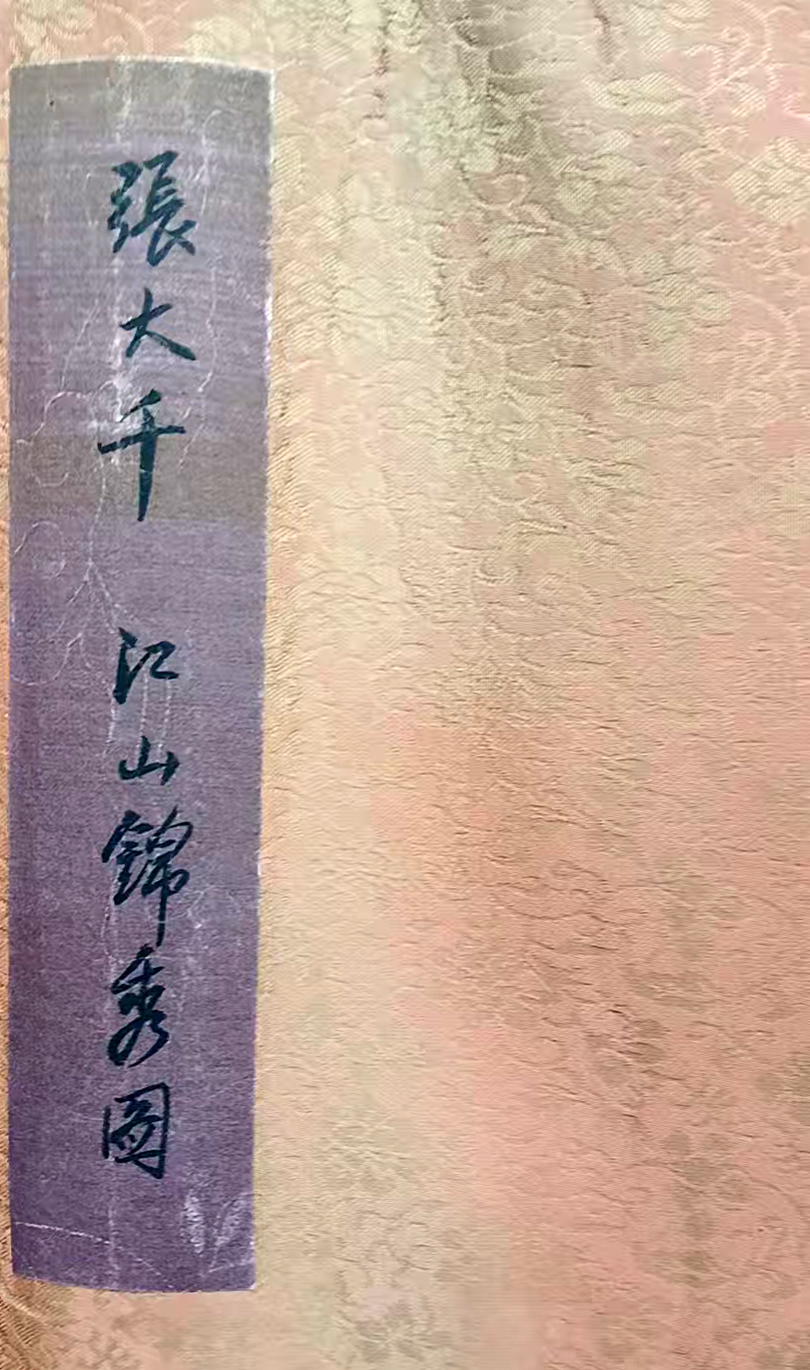 張大千 江山錦秀圖